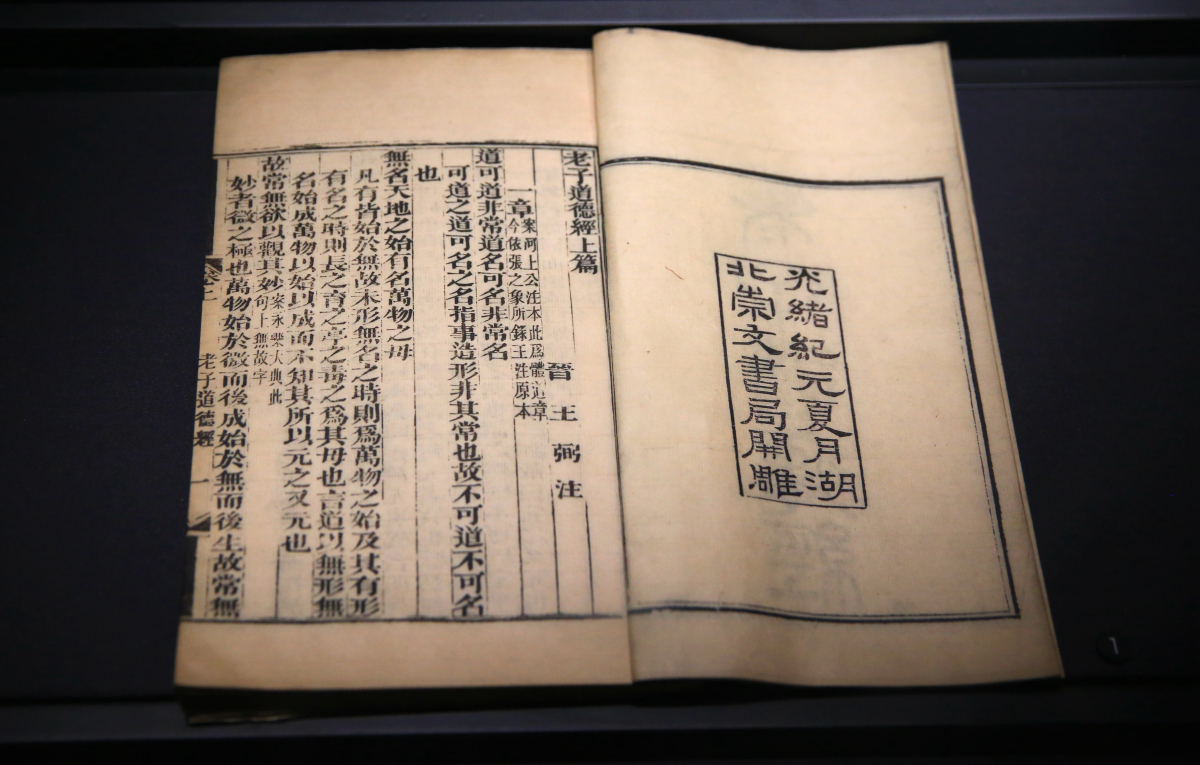 光緒紀元夏月湖
北崇文書局開雕
老子道德經上篇
晉 王 弼 注
一章案河上公注本此爲體道章
今依張之象所錄王注原本
道可道非常道名可名非常名
可道之道可名之名指事造形非其常也故不可道不可名
也
無名天地之始有名萬物之母
凡有皆始於無故未形無名之時則爲萬物之始及其有形
有名之時則長之育之亭之毒之爲其母也言道以無形無
名始成萬物以始以成而不知其所以元之又元也
故常無欲以觀其妙案永樂大典此
句上無故字
妙者微之極也萬物始於微而後成始於無而後生故常無
老子道德經
一
1